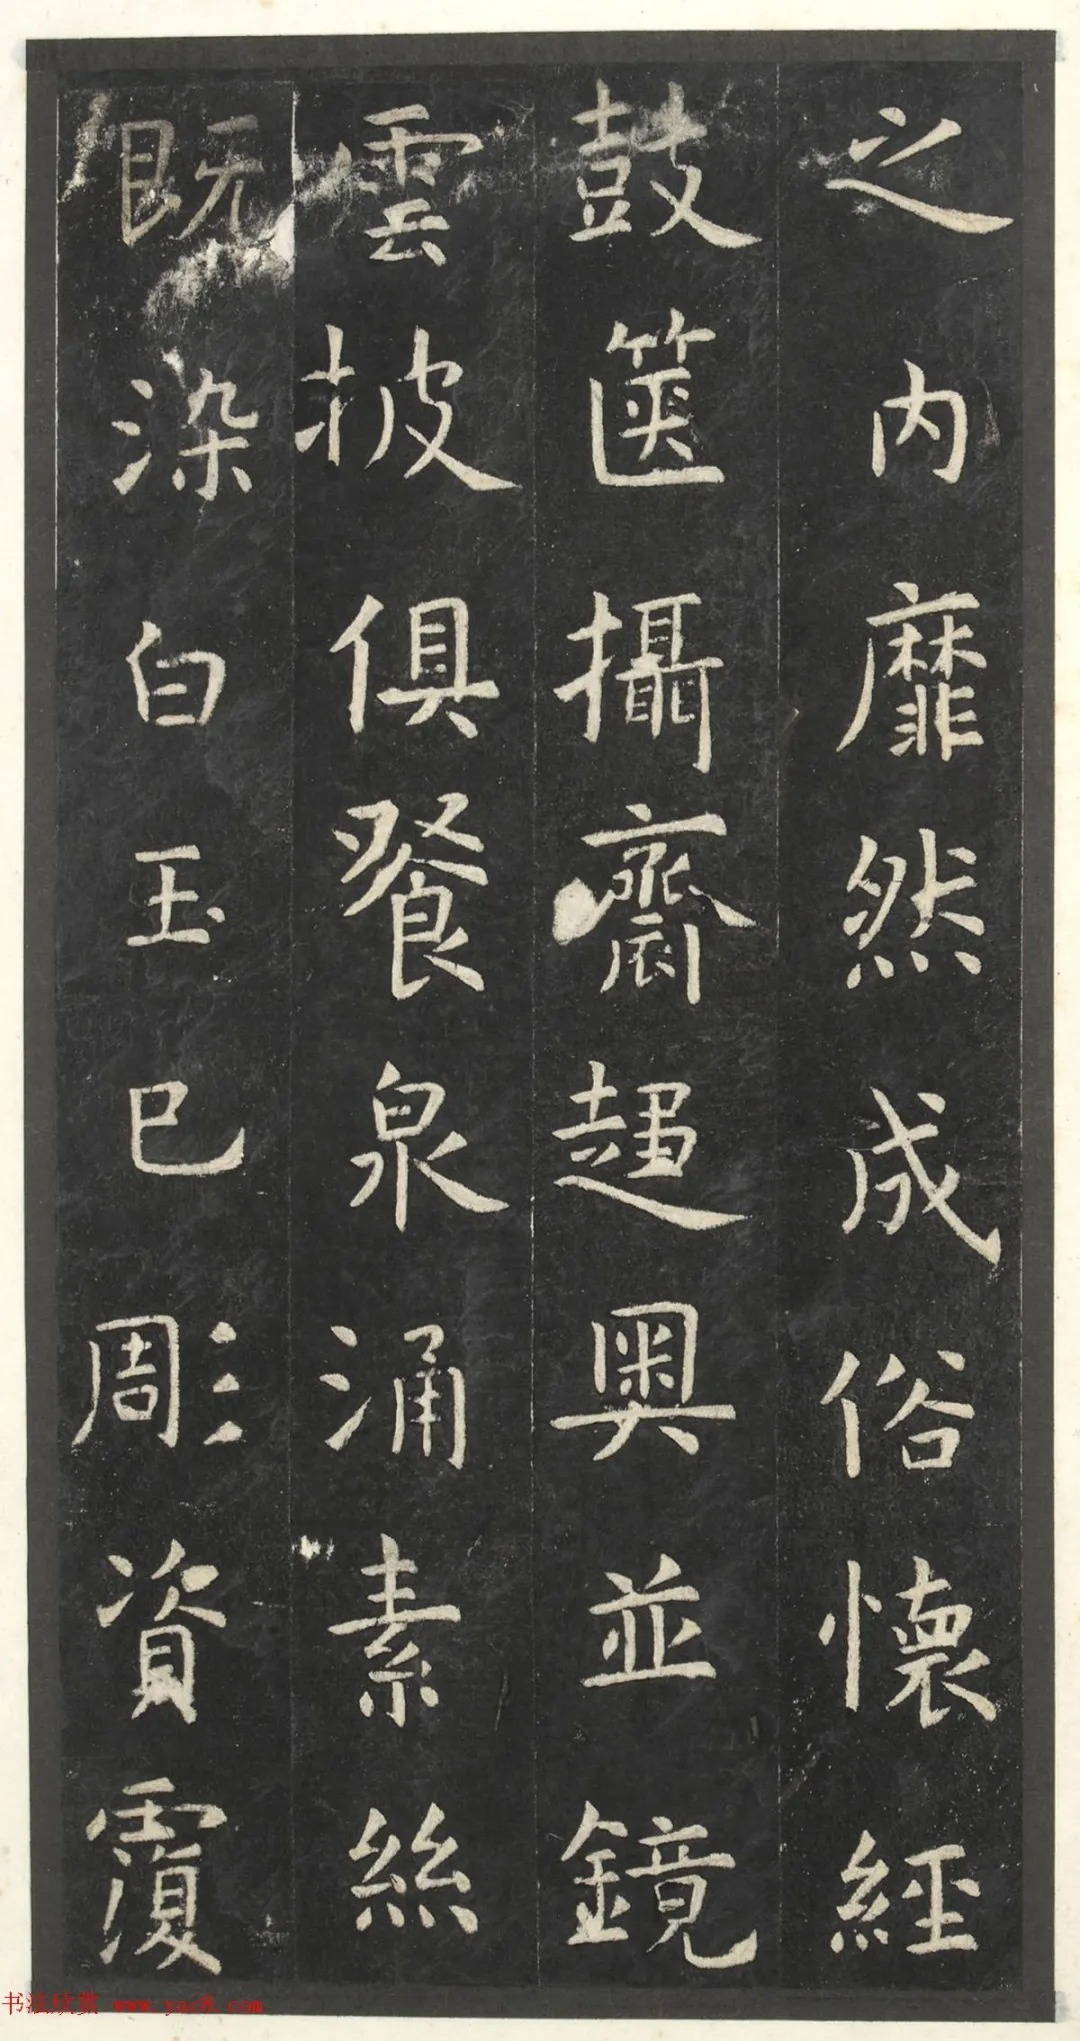 之内靡然成俗懷經
鼓篋攝齋趨奧並鏡
雲披俱餐泉涌素絲
既染白玉已彫資覆
书法欣赏 www.yac8.com